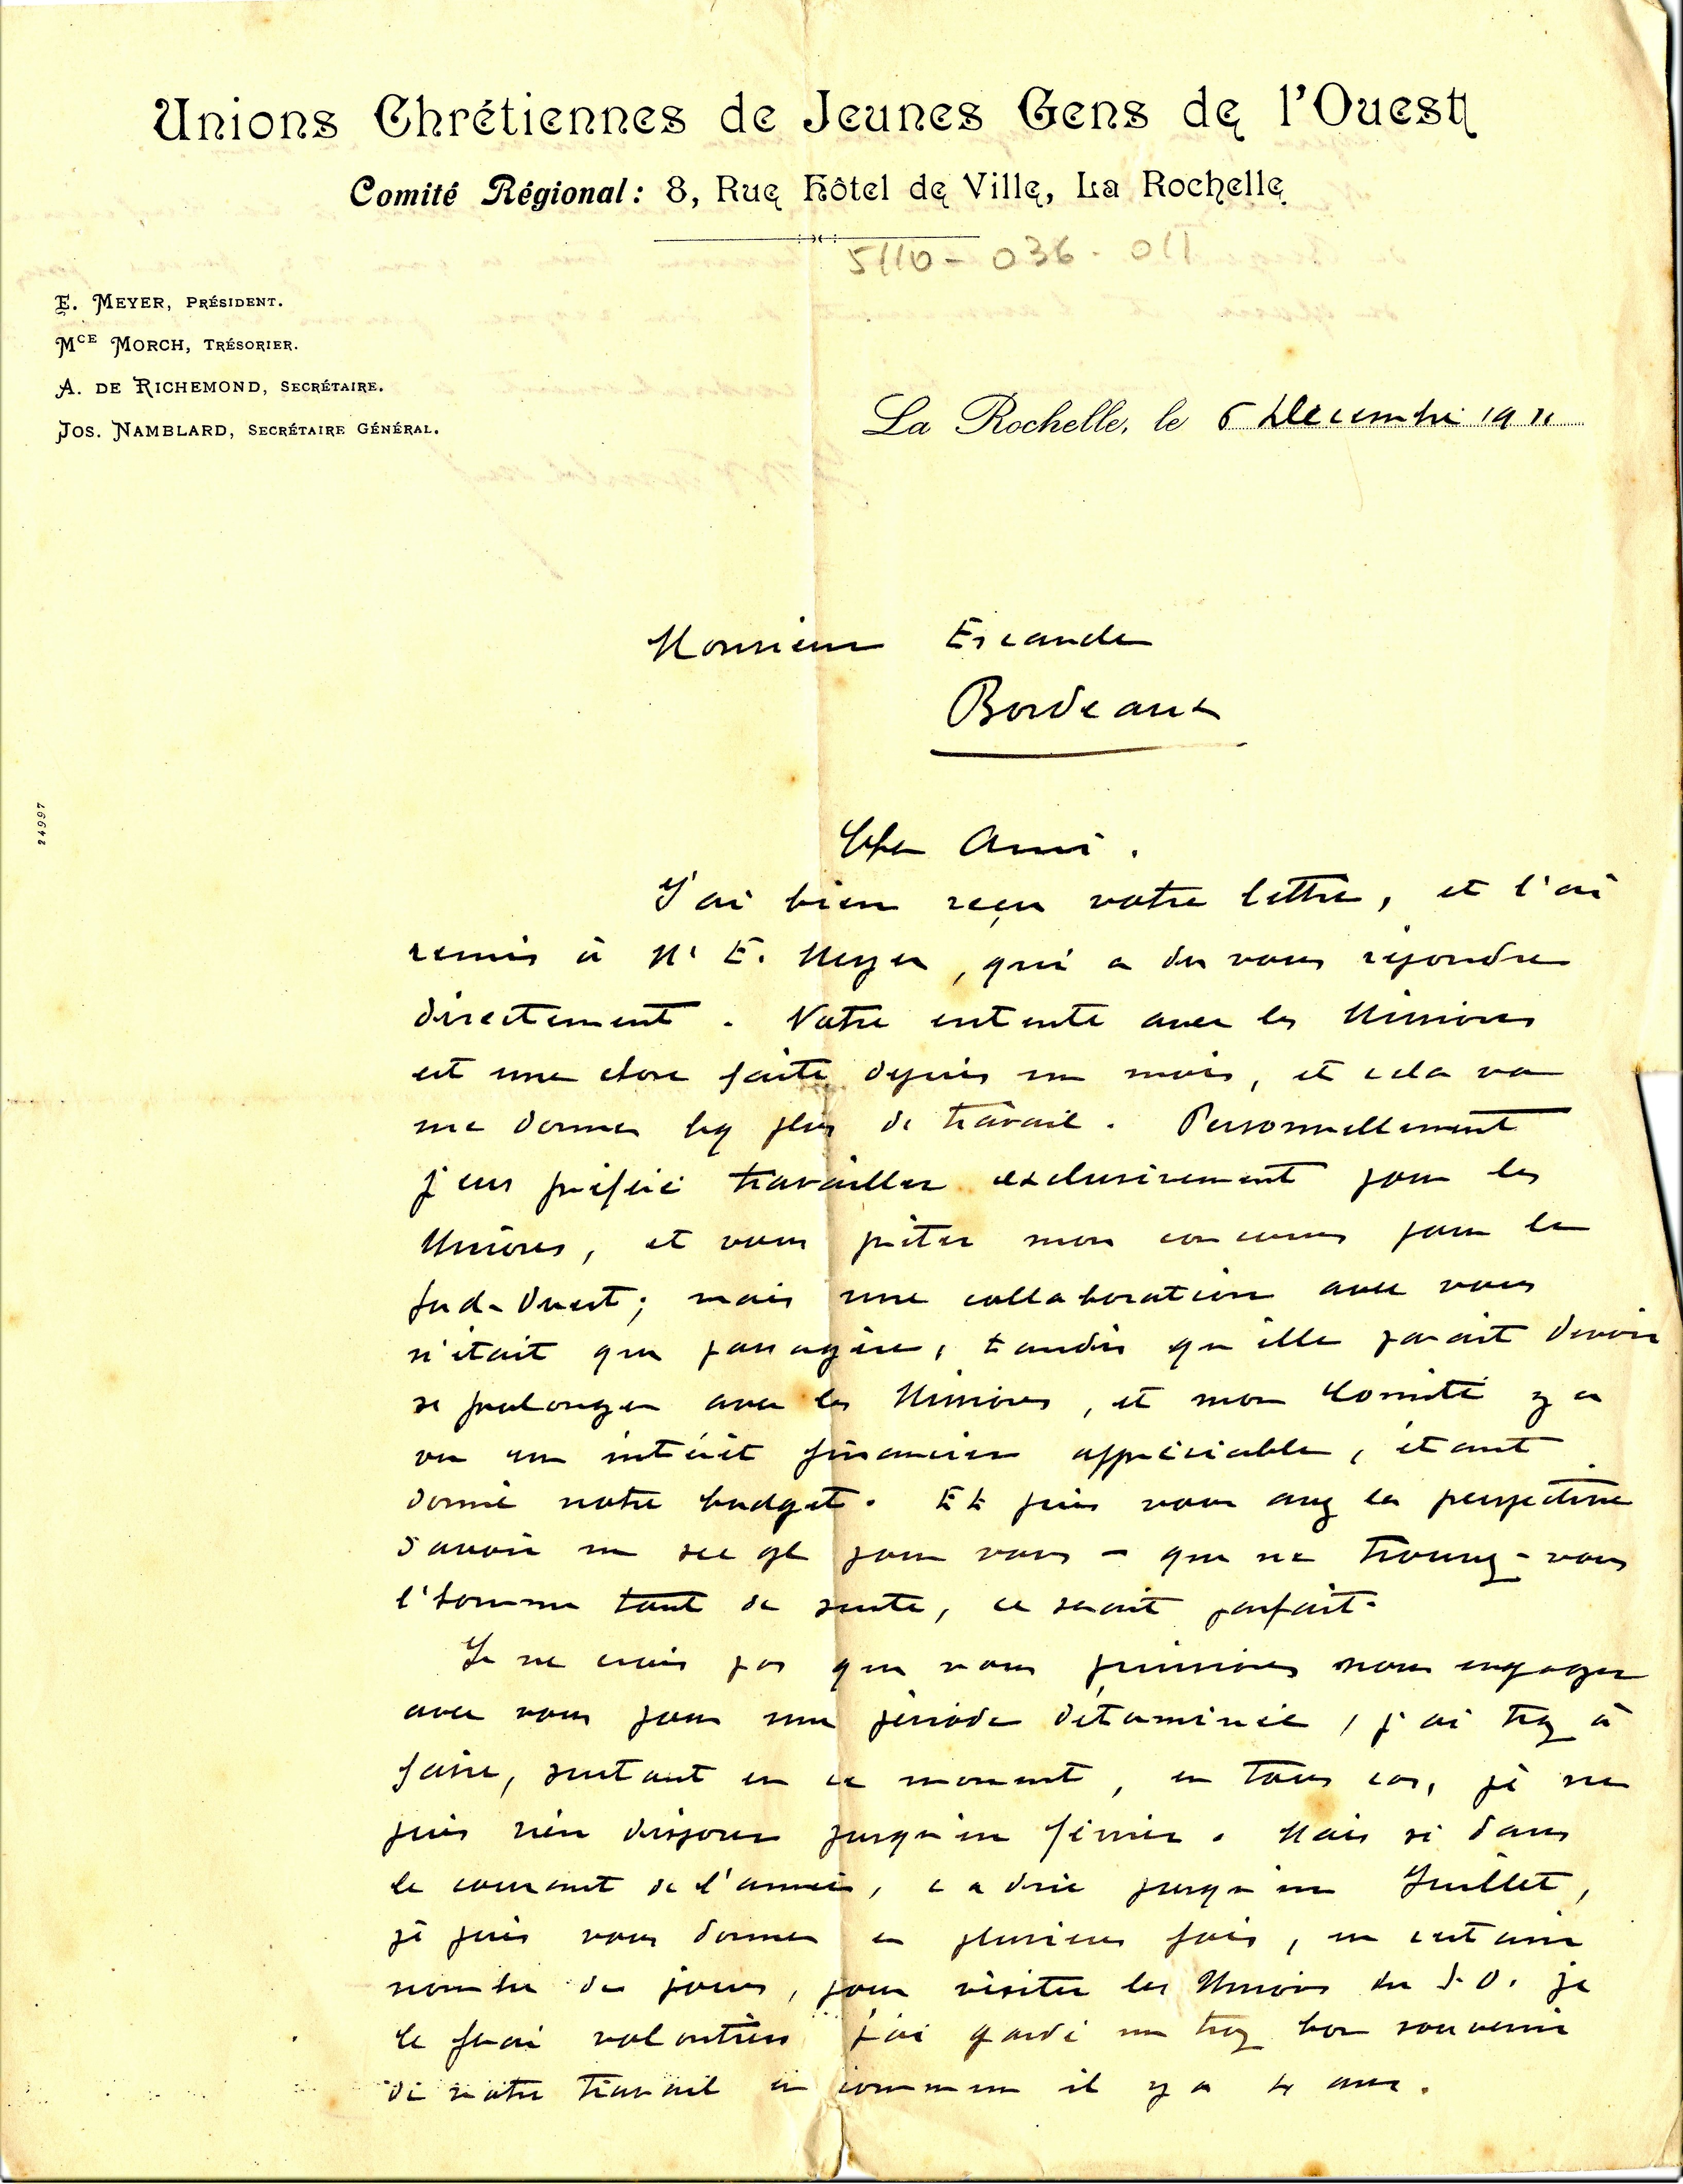 Unions Chrétiennes de Jeunes Gens de l'Ouest
Comité Régional: 8, Rue Hôtel de Ville, La Rochelle
5110-036-011
E. MEYER, PRÉSIDENT.
MCE MORCH, TRÉSORIER.
A. DE RICHEMOND, SECRÉTAIRE.
JOS. NAMBLARD, SECRÉTAIRE GÉNÉRAL.
La Rochelle, le 6 Decembre 1911
Monsieur Escande
Bordeaux
24997
Cher Ami.
J'ai bien reçu votre lettre, et l'ai
remis à Mr E. Meyer, qui a du vous répondre
directement. Notre entente avec les Unions
est une chose faite depuis un mois, et cela va
me donner bcp plus de travail. Personnellement
j'eus préféré travailler exclusivement pour les
Unions, et vous prêter mon concours pour le
Sud-Ouest; mais une collaboration avec vous
n'était que passagère, tandis qu'elle parait devoir
se prolonger avec les Unions, et mon Comité y a
vu un intérêt financier appréciable, étant
donné notre budget. Et puis vous avez la perspective
d'avoir un sec gl pour vous - que ne trouvez-vous
l'homme tant de suite, ce serait parfait.
Je ne crois pas que nous puissions nous engager
avec vous pour une période déterminée, j'ai trop à
faire, surtout en ce moment, en tous cas, je ne
puis rien disposer jusqu'en février. Mais si dans
le courant de l'année, c a dire jusqu'en Juillet,
je puis vous donner en plusieurs fois, un certain
nombre de jours, pour visiter les Unions du S.O. je
le ferai volontiers j'ai gardé un trop bon souvenir
de notre travail en commun il y a 4 ans.